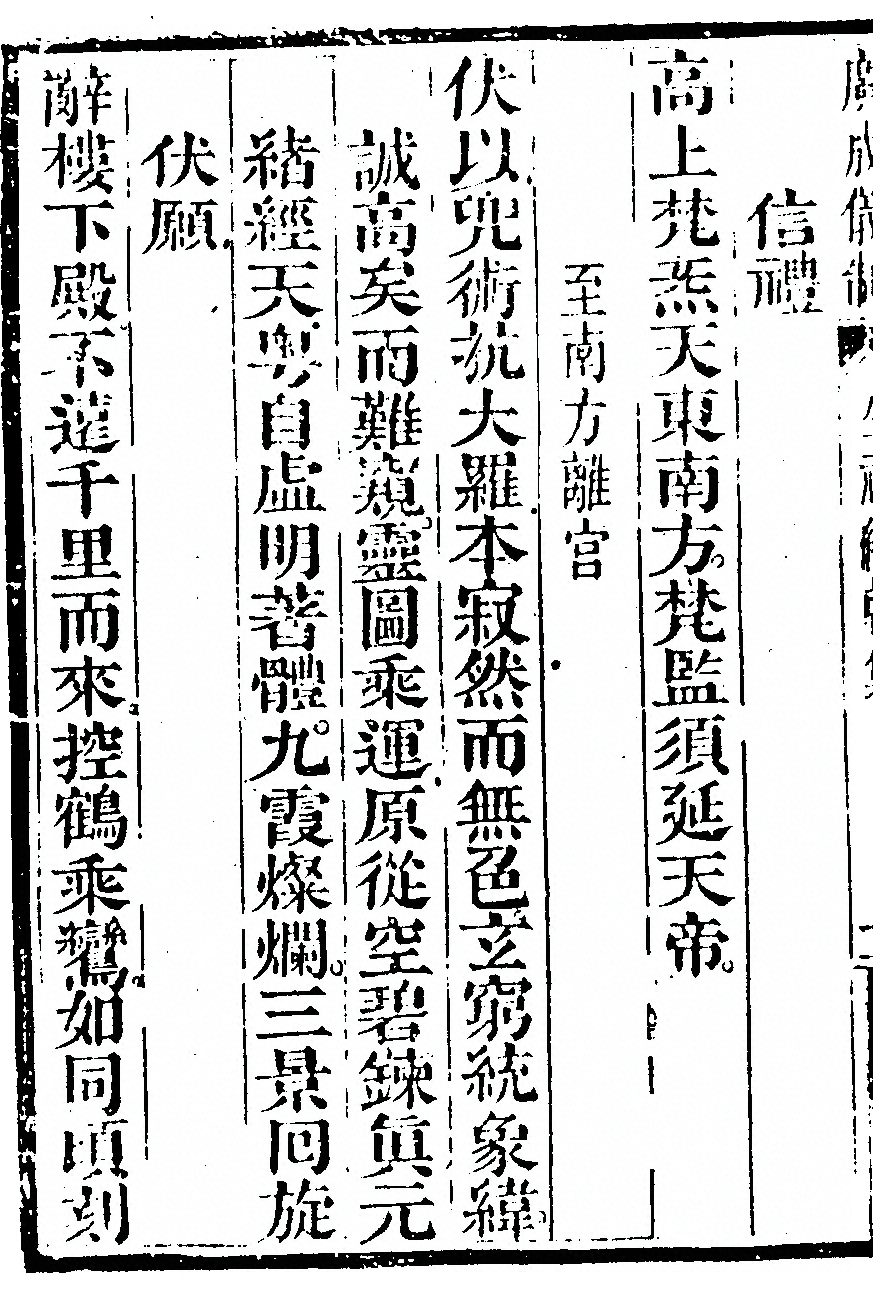 廣成儀制
信禮
高上梵炁天東南方。梵監須延天帝。
至南方離宮
伏以兜術抗大羅本寂然而無色立窮統象緯。
誠高矣而難窺。靈圖乘運原從空碧鍊眞元
緒經天粤自虛明著體。九霞燦爛。三景回旋
伏願。
辭樓下殿不遠千里而來。控鶴乘鸞。如同頃刻